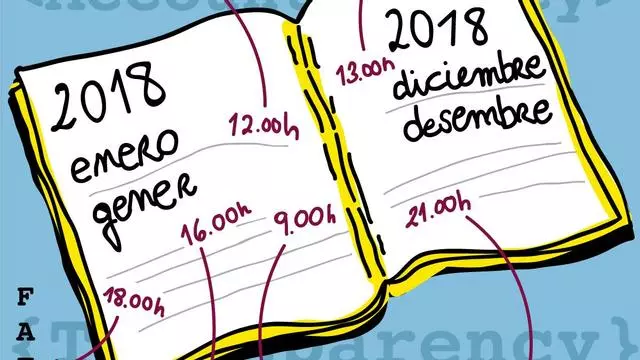 2018
enero
gener
12.00h
16.00h
9.00h
18.00h
13.00h
2018
diciembre
desembre
21.00h
F
A